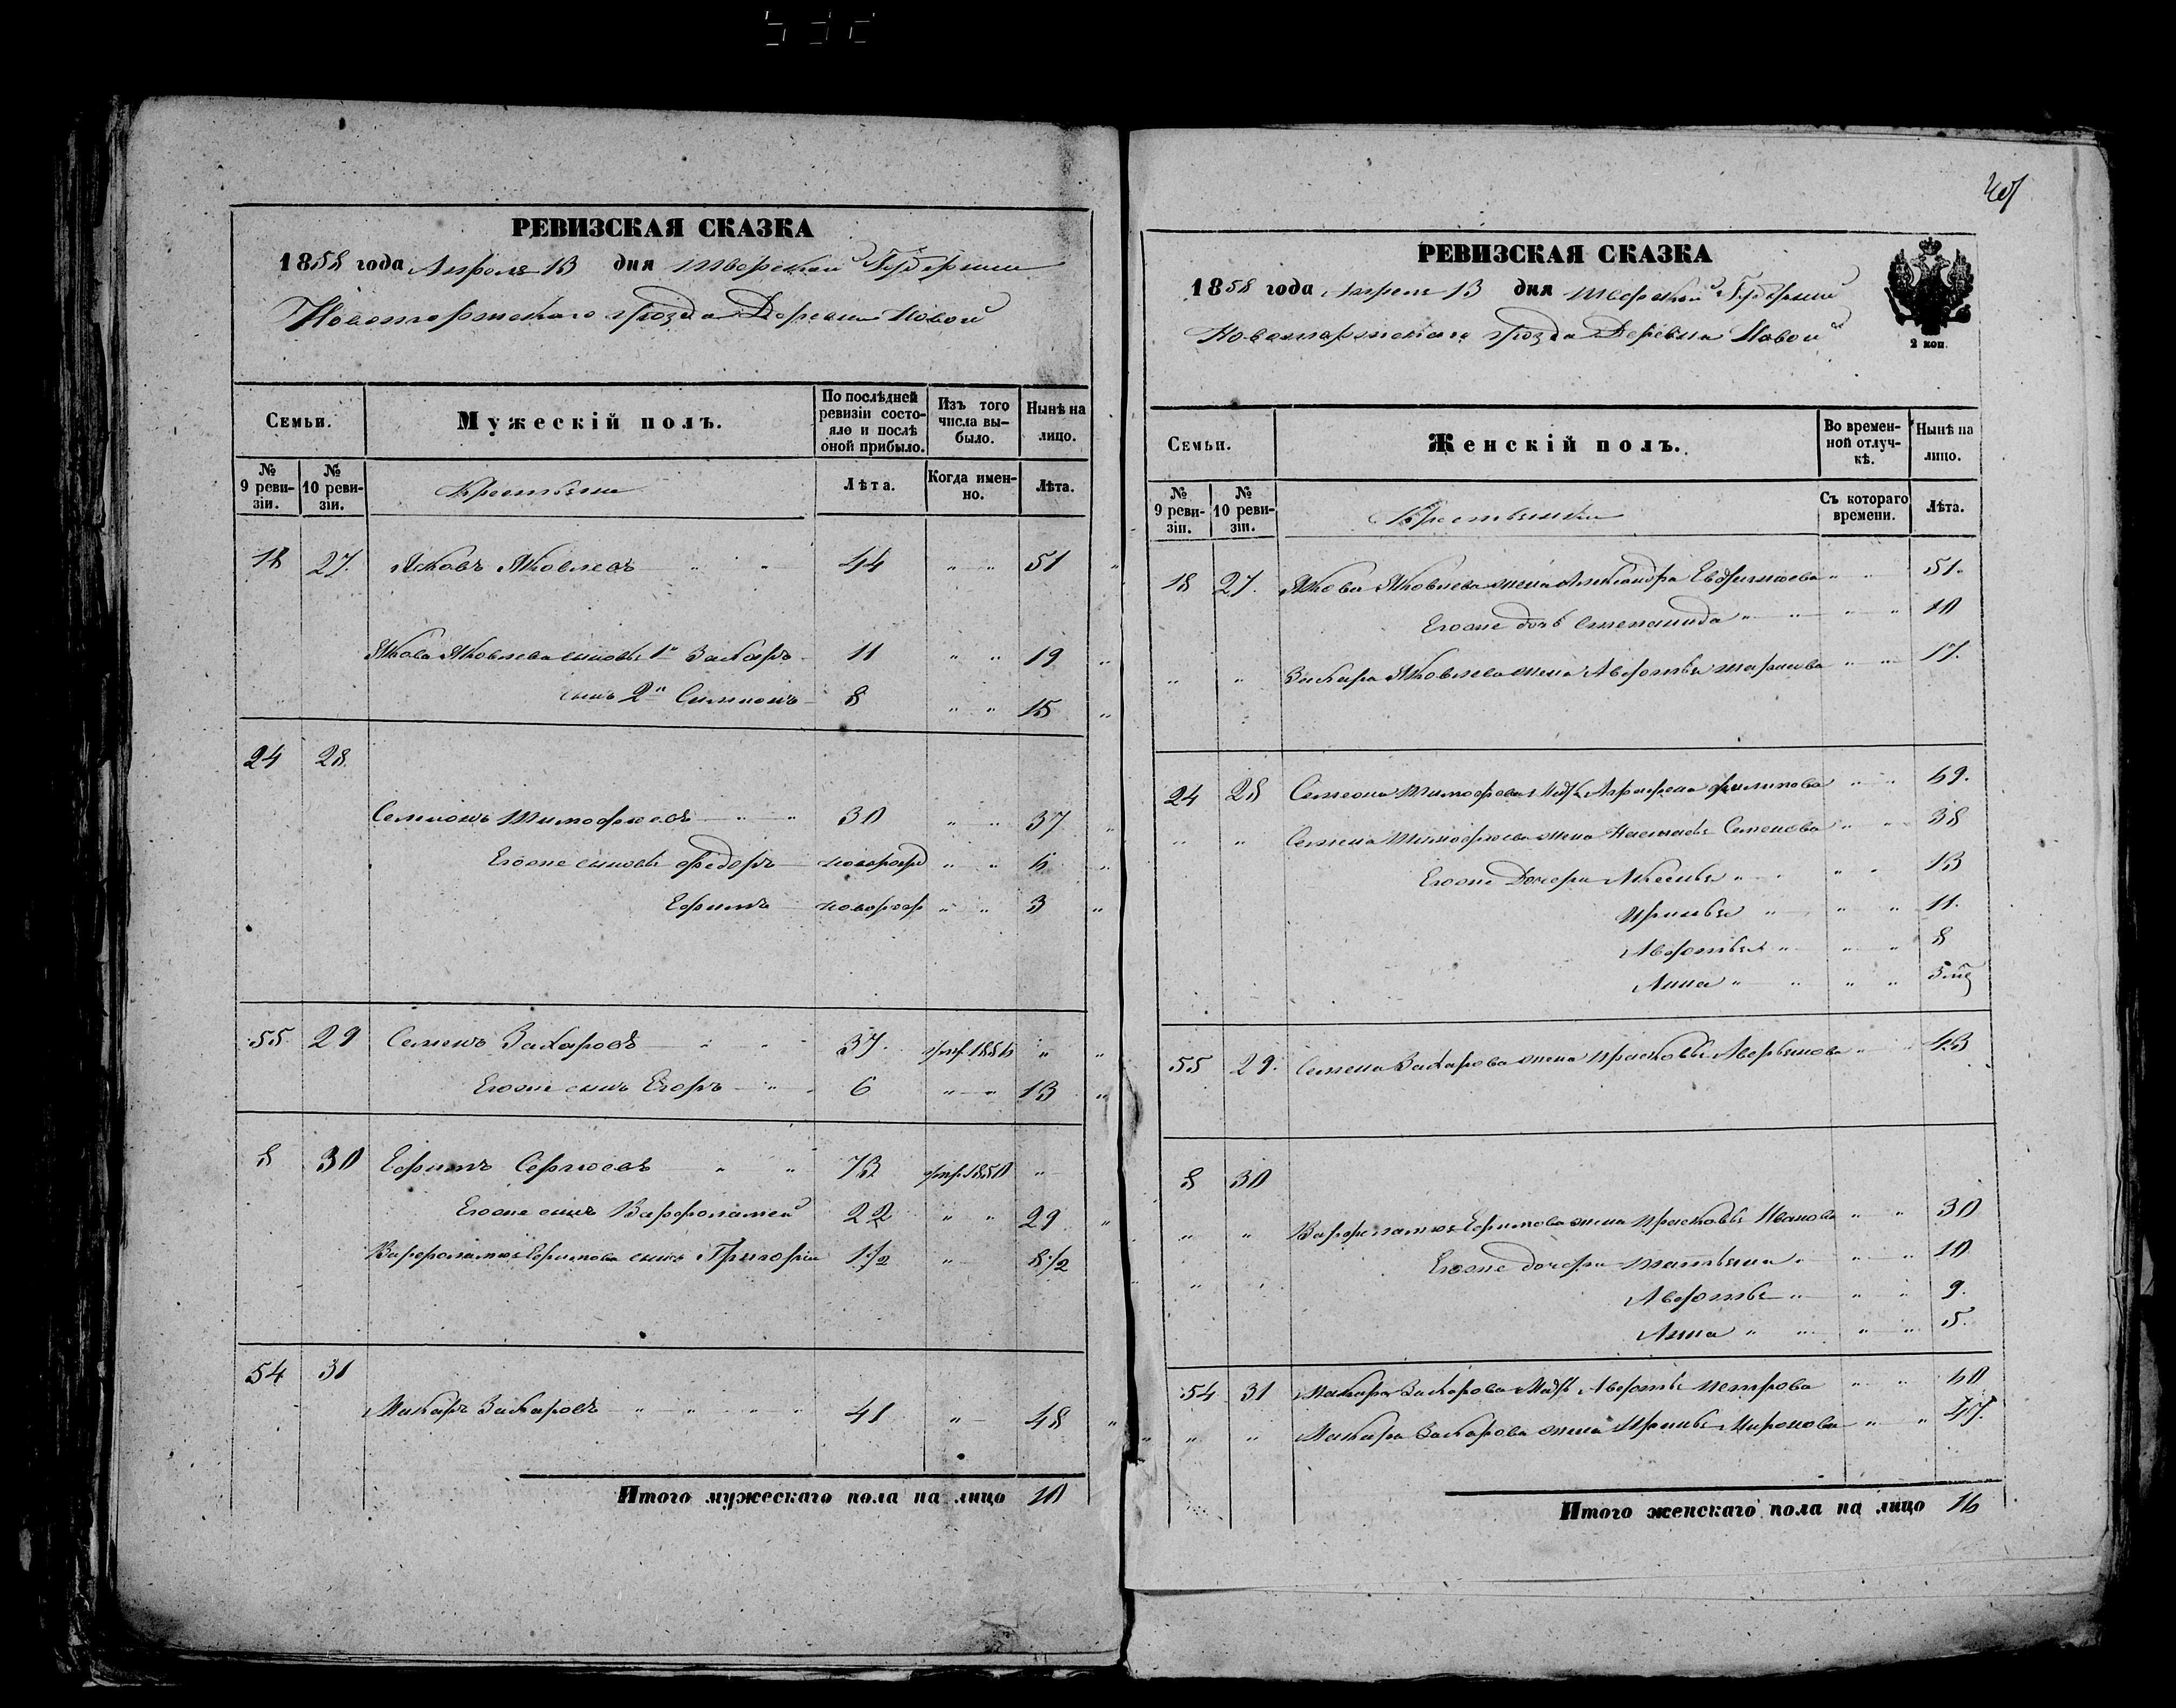 РЕВИЗСКАЯ СКАЗКА
1858 года Апреля 13 дня Тверской Губернии
Новоторжскаго уѣзда Деревни Новой
Семьи.
Мужескій полъ.
По послѣдней ревизіи состояло и послѣ оной прибыло.
Изъ того числа выбыло.
Нынѣ на лицо.
№ 9 ревизіи.
№ 10 ревизіи.
Крестьяне
Лѣта.
Когда именно.
Лѣта.
18 27. Яковъ Яковлевъ 44 " " 51 "
Якова Яковлева сыновья 1й Захаръ 11 " " 19 "
сынъ 2й Симионъ 8 " " 15 "
24 28
Семионъ Тимофѣевъ " " 30 " " 37 "
Егоже сыновья Федоръ новорожд " " 6 "
Ефимъ новорож " " 3 "
55 29 Семенъ Захаровъ " " 37. умр. 1856 " "
Егоже сынъ Егоръ " 6 " " 13 "
8 30 Ефимъ Сергѣевъ " " 73 умр. 1850 "
Егоже сынъ Варфоламей 22 " " 29 "
Варфоламея Ефимова сынъ Григорій 1 1/2 " 8 1/2
54 31
Макаръ Захаровъ " " " " 41 " 48 "
Итого мужескаго пола на лицо 10
РЕВИЗСКАЯ СКАЗКА
1858 года Апреля 13 дня Тверской Губернии
Новоторжскаго уѣзда Деревни Новой
2 коп.
Семьи.
Женскій полъ.
Во временной отлучкѣ.
Нынѣ на лицо.
№ 9 ревизіи.
№ 10 ревизіи.
Крестьянки
Съ котораго времени.
Лѣта.
18 27. Якова Яковлева жена Александра Евфимоева " " 51.
Егоже дочь Степанида " " " " 10
" " Захара Яковлева жена Авдотья Тарасова " " 17.
24 28 Семиона Тимофѣева Мать Аграфена Филипова " " 69.
" " Семена Тимофѣева жена Настасья Семенова " " 38
Егоже Дочери Аксинья " " " " 13
Иринья " " " 11.
Авдотья " " " 8
Анна " " " " 5 мѣ
55 29. Семена Захарова жена Прасковья Аверьянова " " 43
8 30
" " Варфоламея Ефимова жена Прасковья Иванова " " 30
" " Егоже дочери Татьяна " " " 10
Авдотья " " " 9.
Анна " " " " 5.
54 31 Макара Захарова Мать Авдотья Петрова " " 60
" " Макара Захарова жена Иринья Миронова " " 47.
Итого женскаго пола на лицо 16